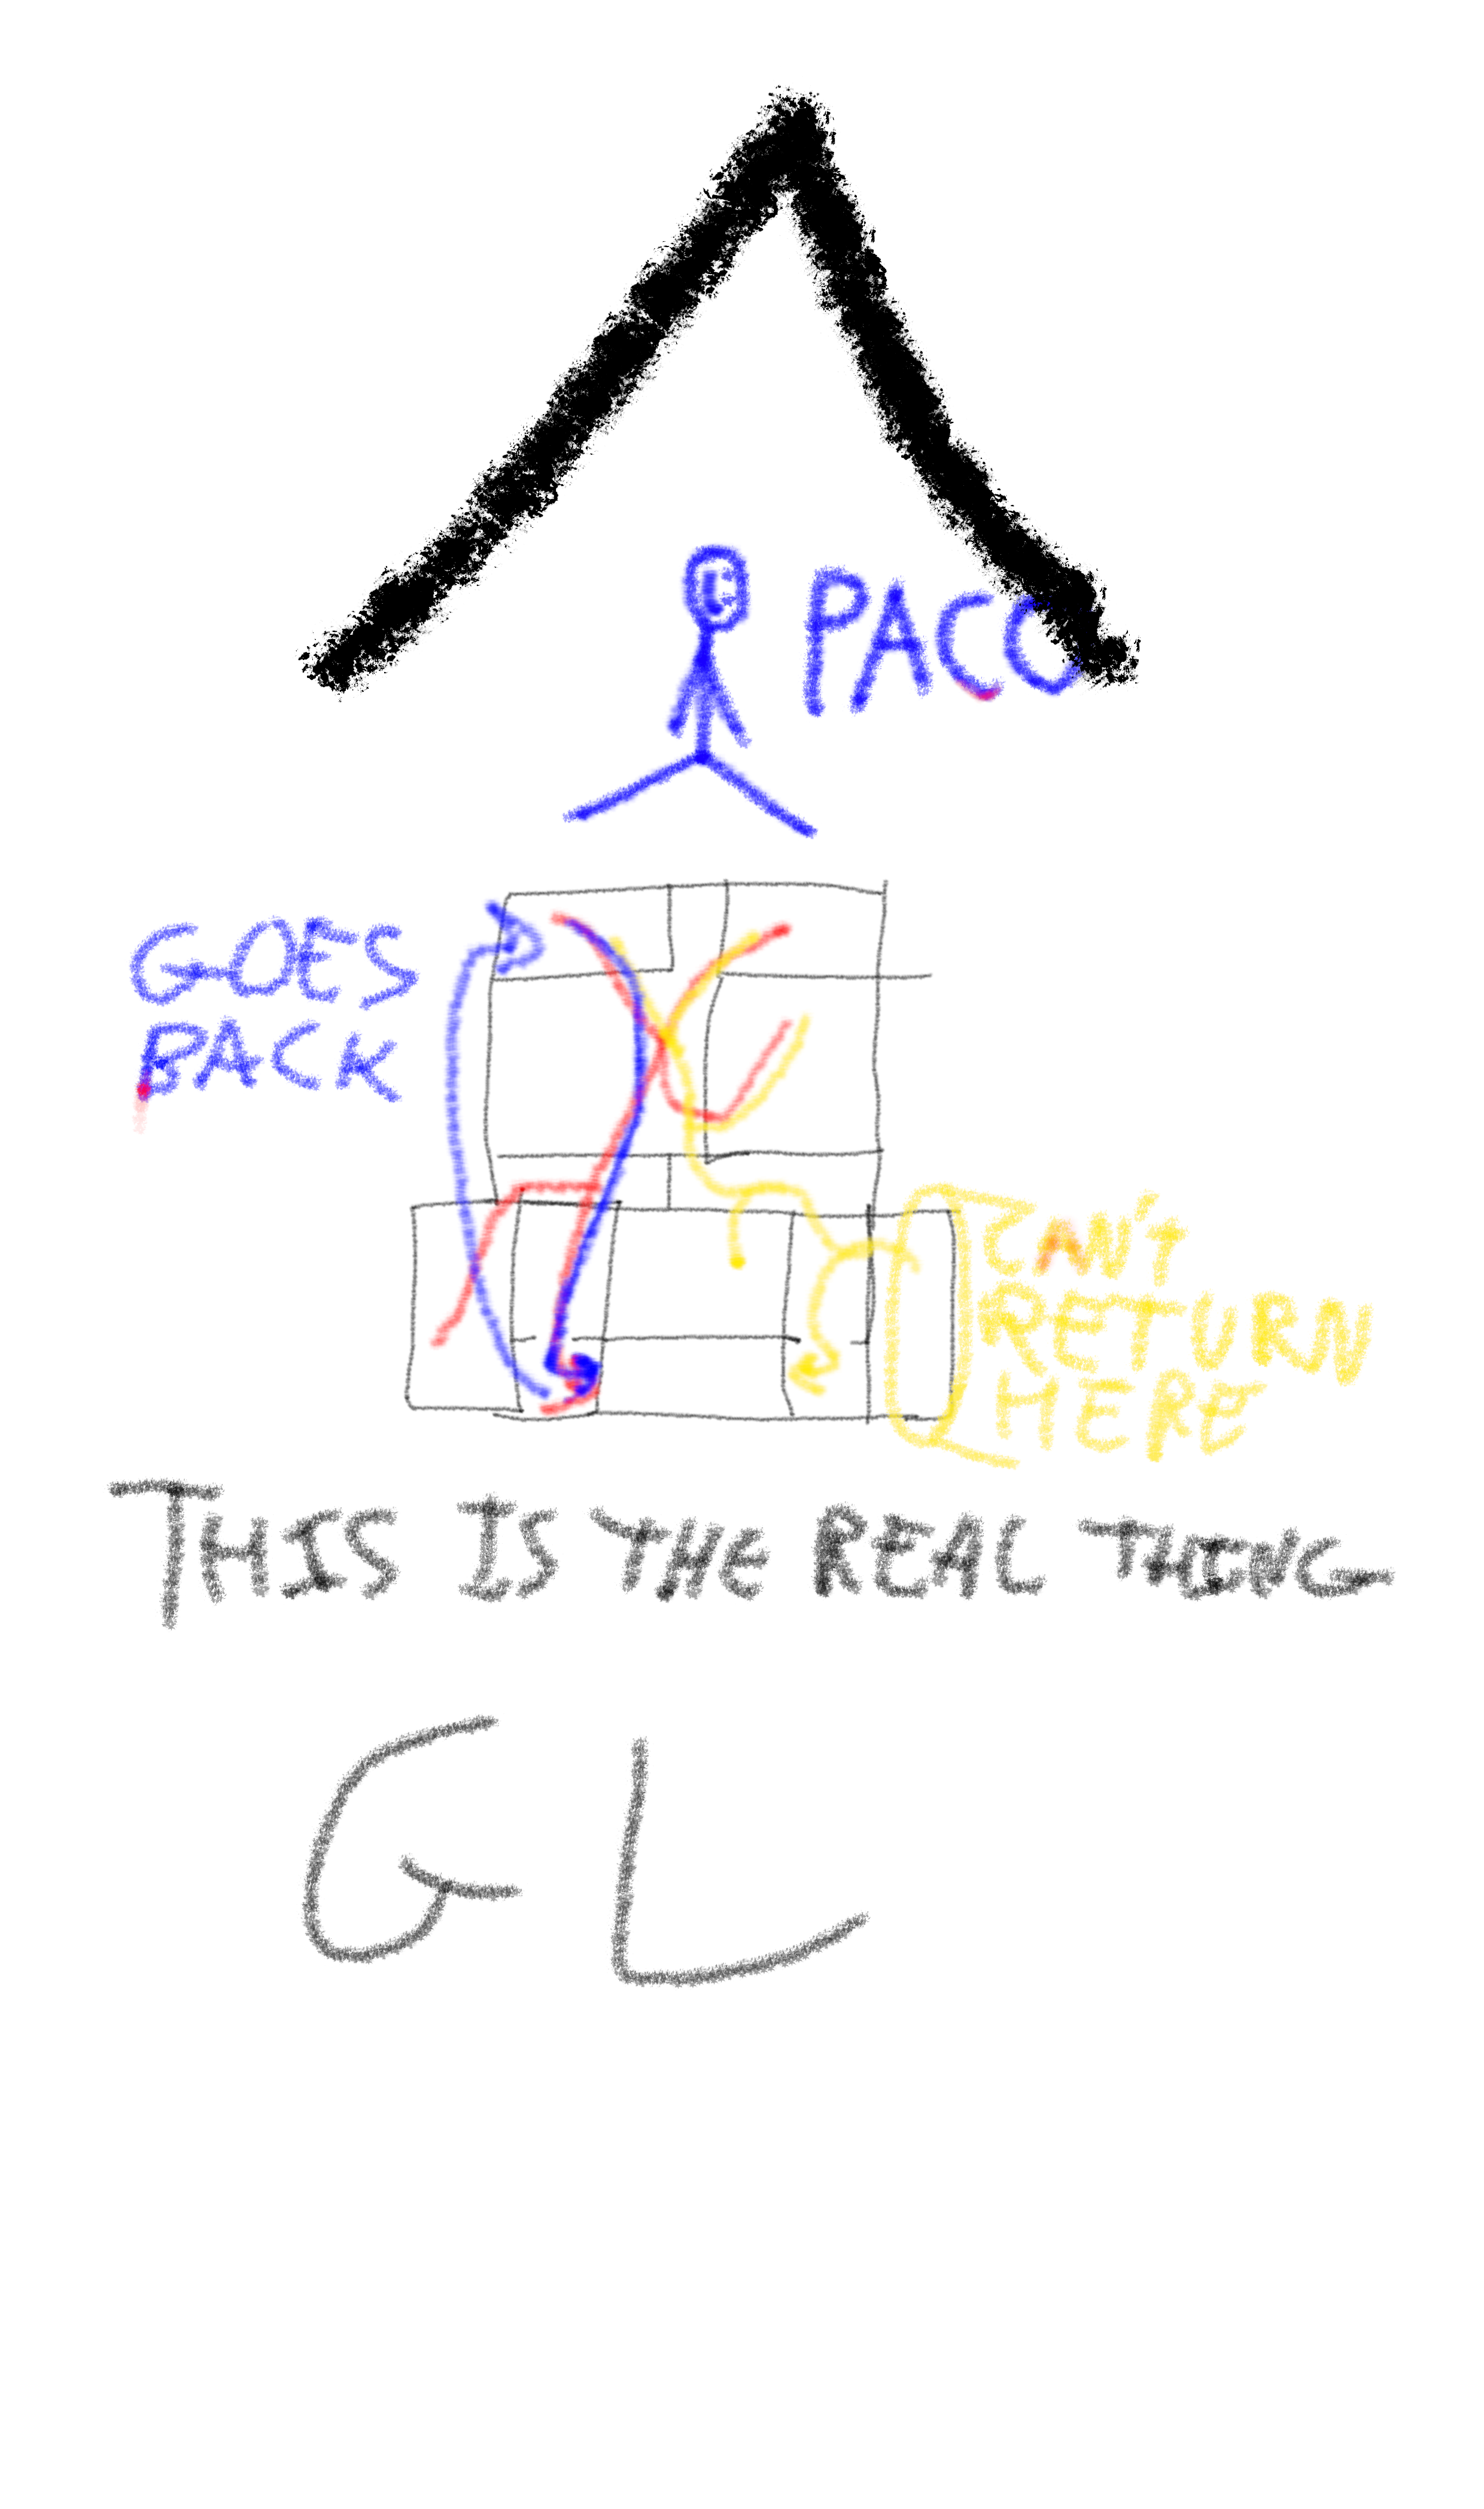 PACO
GOES
BACK
CAN'T
RETURN
HERE
THIS IS THE REAL THING
GL